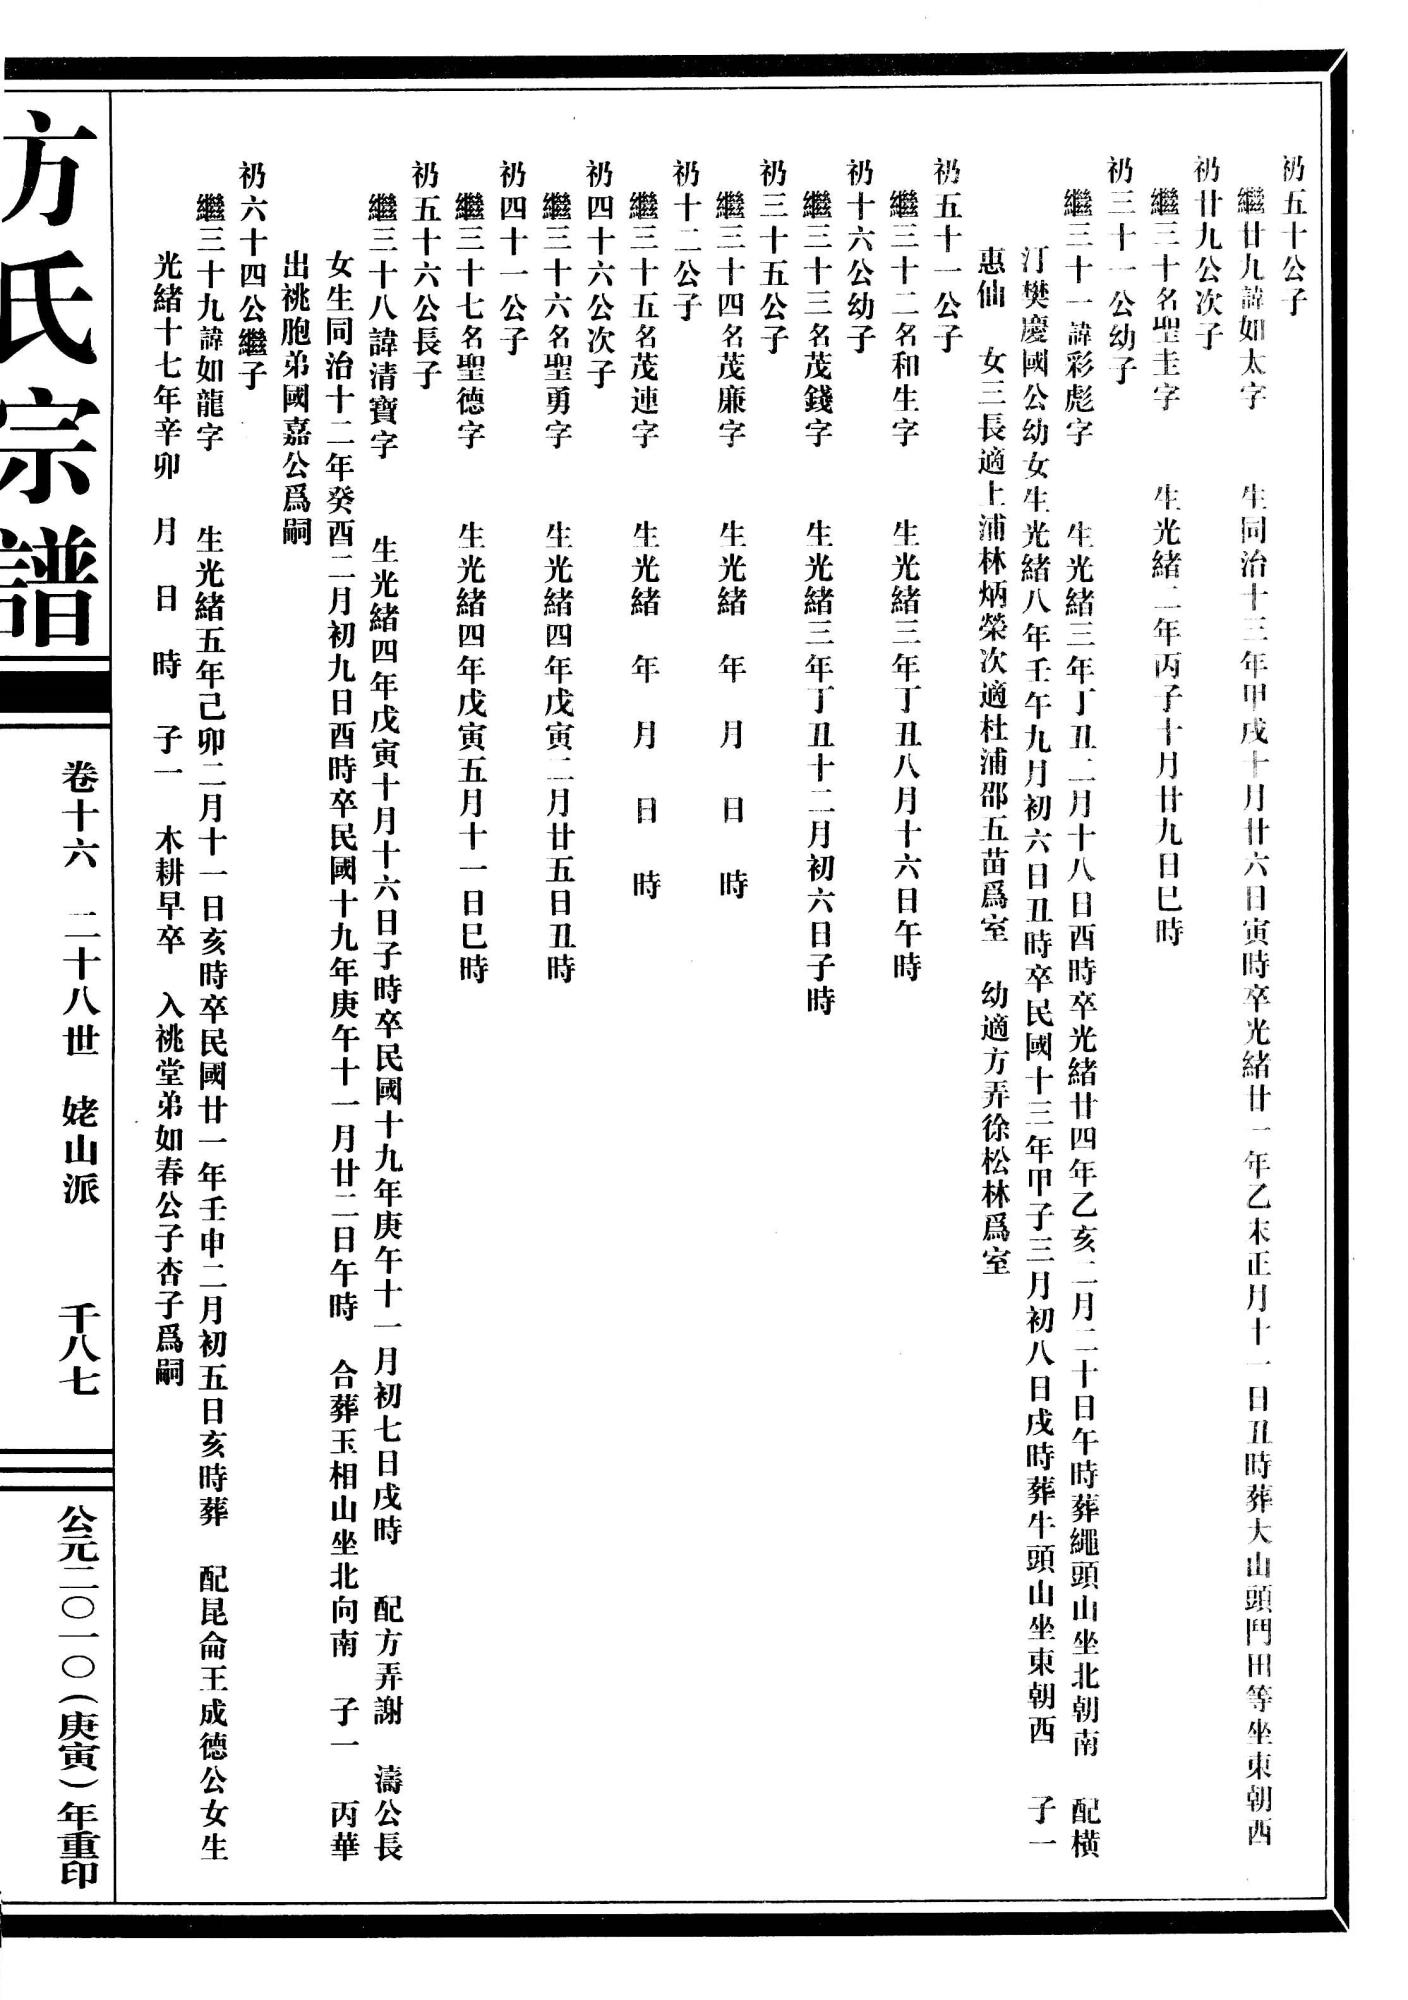 礽五十公子
繼廿九諱如太字　生同治十三年甲戌十月廿六日寅時卒光緒廿一年乙未正月十一日丑時葬大山頭門田等坐東朝西
礽廿九公次子
繼三十名聖圭字　生光緒二年丙子十月廿九日巳時
礽三十一公幼子
繼三十一諱彩彪字　生光緒三年丁丑二月十八日酉時卒光緒廿四年乙亥二月二十日午時葬繩頭山坐北朝南　配橫
汀樊慶國公幼女生光緒八年壬午九月初六日丑時卒民國十三年甲子三月初八日戌時葬牛頭山坐東朝西　子一
惠仙　女三長適上浦林炳榮次適杜浦邵五苗爲室　幼適方弄徐松林爲室
礽五十一公子
繼三十二名和生字　生光緒三年丁丑八月十六日午時
礽十六公幼子
繼三十三名茂錢字　生光緒三年丁丑十二月初六日子時
礽三十五公子
繼三十四名茂廉字　生光緒　年　月　日　時
礽十二公子
繼三十五名茂連字　生光緒　年　月　日　時
礽四十六公次子
繼三十六名聖勇字　生光緒四年戊寅二月廿五日丑時
礽四十一公子
繼三十七名聖德字　生光緒四年戊寅五月十一日巳時
礽五十六公長子
繼三十八諱清寶字　生光緒四年戊寅十月十六日子時卒民國十九年庚午十一月初七日戌時　配方弄謝　濤公長
女生同治十二年癸酉二月初九日酉時卒民國十九年庚午十一月廿二日午時　合葬玉相山坐北向南　子一　丙華
出祧胞弟國嘉公爲嗣
礽六十四公繼子
繼三十九諱如龍字　生光緒五年己卯二月十一日亥時卒民國廿一年壬申二月初五日亥時葬　配昆侖王成德公女生
光緒十七年辛卯　月　日　時　子一　木耕早卒　入祧堂弟如春公子杏子爲嗣
方氏宗譜
卷十六　二十八世　姥山派　千八七
公元二〇一〇（庚寅）年重印